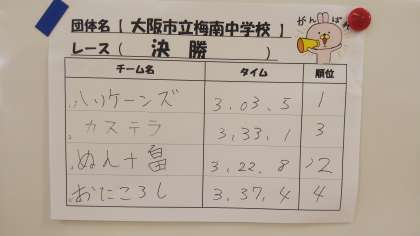 団体名【 大阪市立梅南中学校 】
レース( 決 勝 )
がんばれ
チーム名 タイム 順位
ハリケーンズ 3.03.5 1
カステラ 3,33,1 3
ぬん十畠 3,22.8 2
おにころし 3.37,4 4